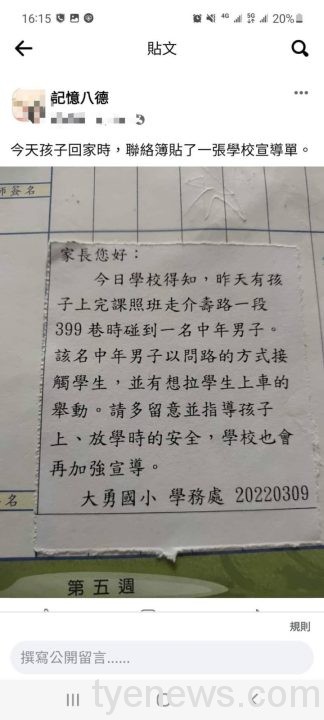 16:15
4G
5G
20%
貼文
記憶八德
今天孩子回家時，聯絡簿貼了一張學校宣導單。
師簽名
家長您好：
今日學校得知，昨天有孩
子上完課照班走介壽路一段
399 巷時碰到一名中年男子。
該名中年男子以問路的方式接
觸學生，並有想拉學生上車的
舉動。請多留意並指導孩子
上、放學時的安全，學校也會
再加強宣導。
大勇國小 學務處 20220309
名
第五週
規則
撰寫公開留言......
tyenews.com